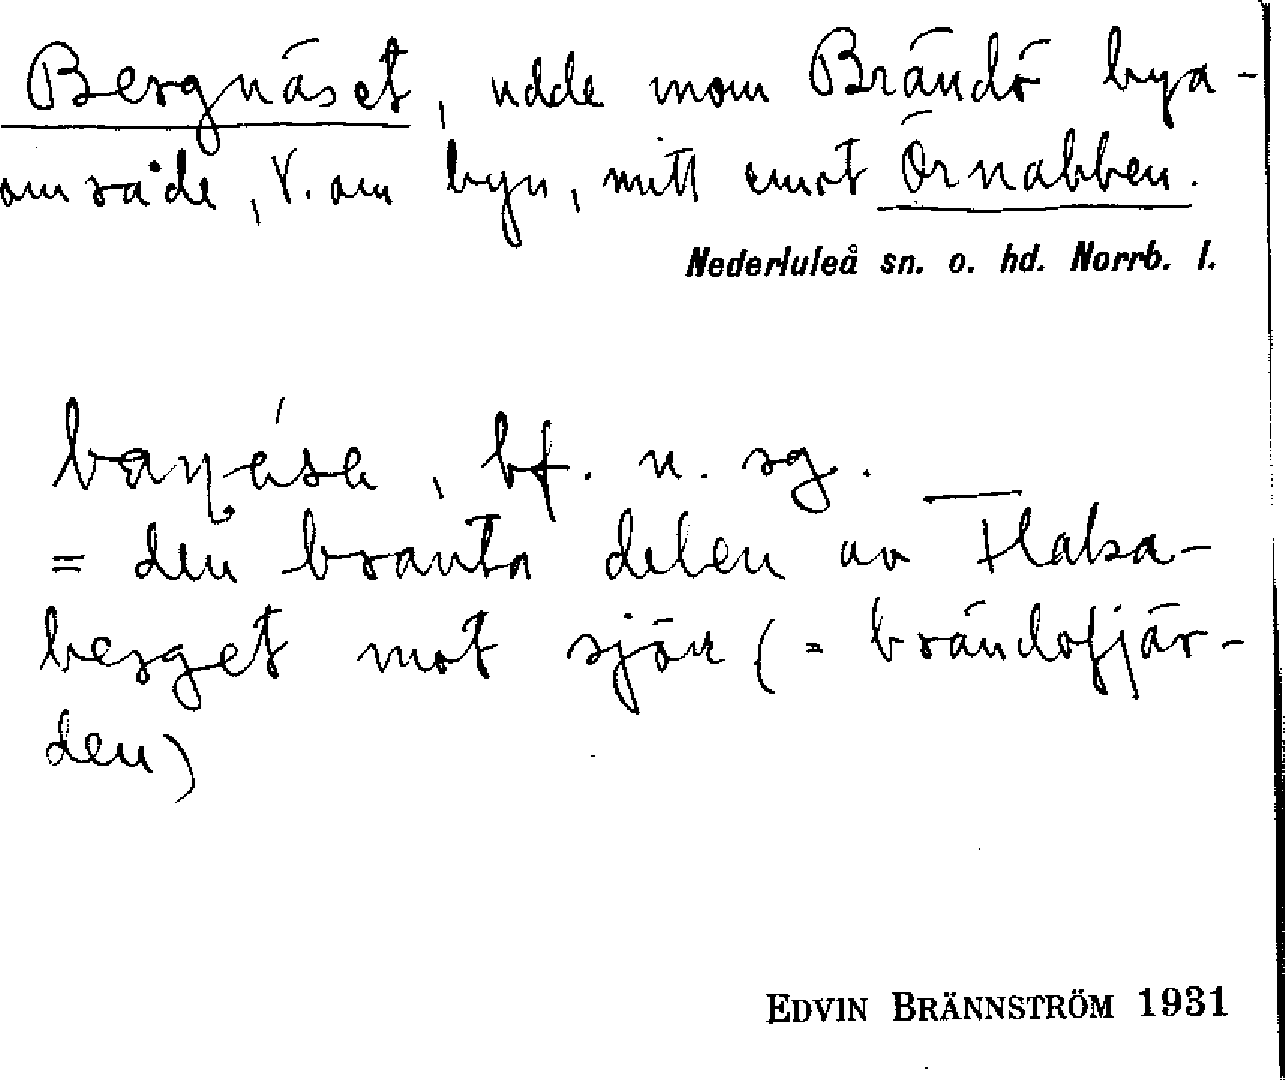 Bergnäset, udde inom Brändö bya-
område, V. om byn, mitt emot Örnabben.
Nederluleå sn. o. hd. Norrb. l.
bf. n. sg.
= den branta delen av Flaka-
berget mot sjön (= brändöfjär-
den)
EDVIN BRÄNNSTRÖM 1931